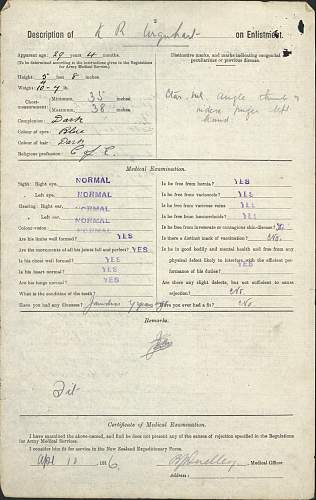 Description of K R Urquhart on Enlistment.
Apparent age: 29 years 4 months.
(To be determined according to the instructions given in the Regulations for Army Medical Service.)
Height: 5 feet 8 inches.
Weight: 10-4
Chest-measurement: Minimum, 35 inches.
Maximum, 38 inches.
Complexion: Dark
Colour of eyes: Blue
Colour of hair: Dark
Religious profession: C of E.
Distinctive marks, and marks indicating congenital peculiarities or previous disease.
angle thumb & finger left hand
Medical Examination.
Sight: Right eye, NORMAL
" Left eye, NORMAL
Hearing: Right ear, NORMAL
" Left ear, NORMAL
Colour-vision NORMAL
Are his limbs well formed? YES
Are the movements of all his joints full and perfect? YES
Is his chest well formed? YES
Is his heart normal? YES
Are his lungs normal? YES
What is the condition of the teeth?
Have you had any illnesses? Jaundice 4 years ago
Is he free from hernia? YES
Is he free from varicocele? YES
Is he free from varicose veins? YES
Is he free from hæmorrhoids? YES
Is he free from inveterate or contagious skin-disease? YES
Is there a distinct mark of vaccination? No.
Is he in good bodily and mental health and free from any physical defect likely to interfere with the efficient performance of his duties? YES
Are there any slight defects, but not sufficient to cause rejection? No.
Have you ever had a fit? No.
Remarks.
Fit
Certificate of Medical Examination.
I have examined the above-named, and find he does not present any of the causes of rejection specified in the Regulations for Army Medical Service.
I consider him fit for service in the New Zealand Expeditionary Force.
Apl 10 1916
Medical Officer
Address: